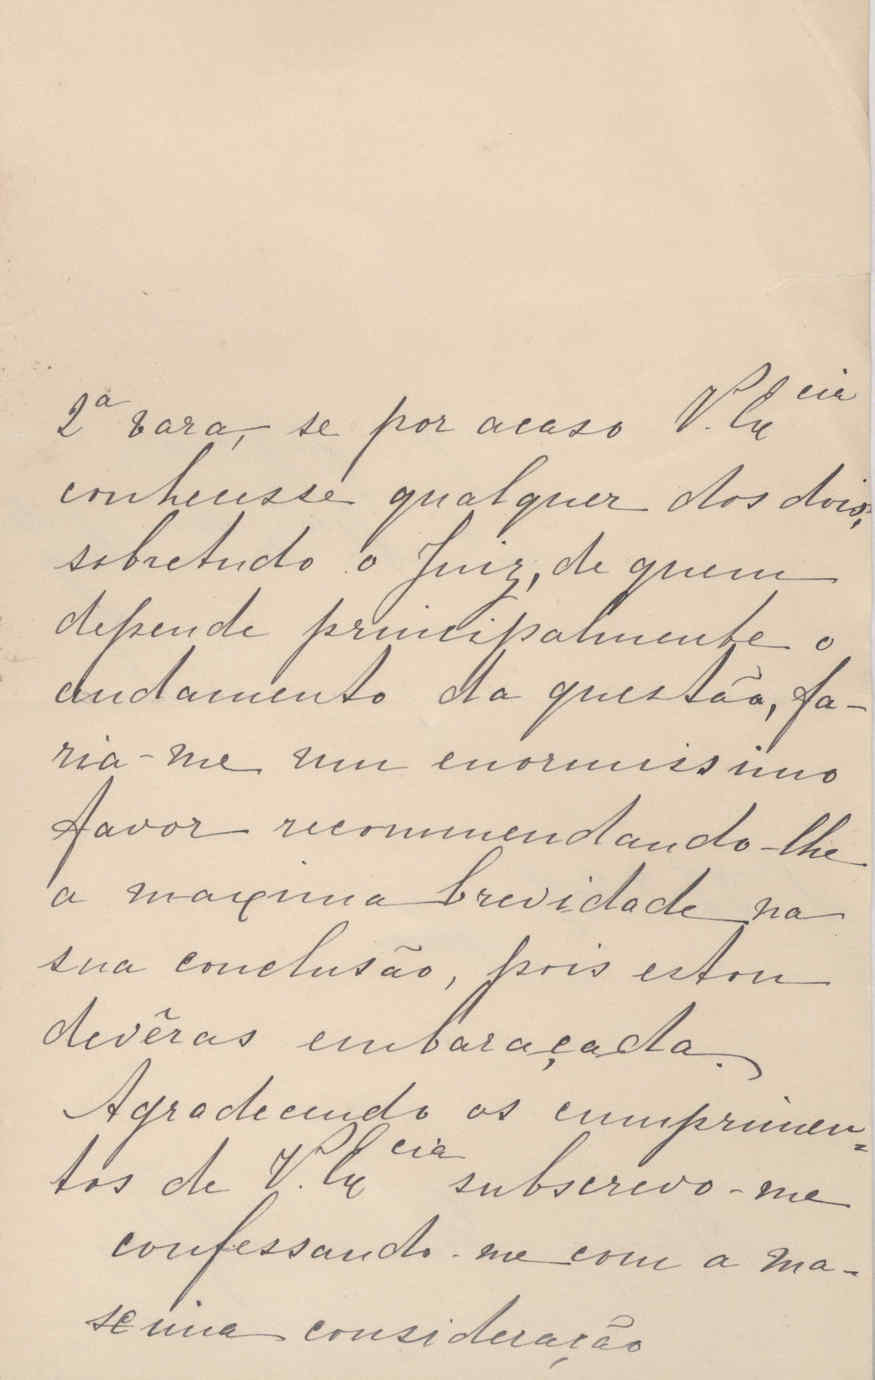 2ª vara, se por acaso V. Excia
conhecesse qualquer dos dois,
sobretudo o Juiz, de quem
depende principalmente o
andamento da questão, fa-
ria-me um enormissimo
favor recommendando-lhe
a maxima brevidade na
sua conclusão, pois estou
devêras embaraçada.
Agradecendo os cumprimen=
tos de V. Excia subscrevo-me
confessando-me com a ma-
xima consideração